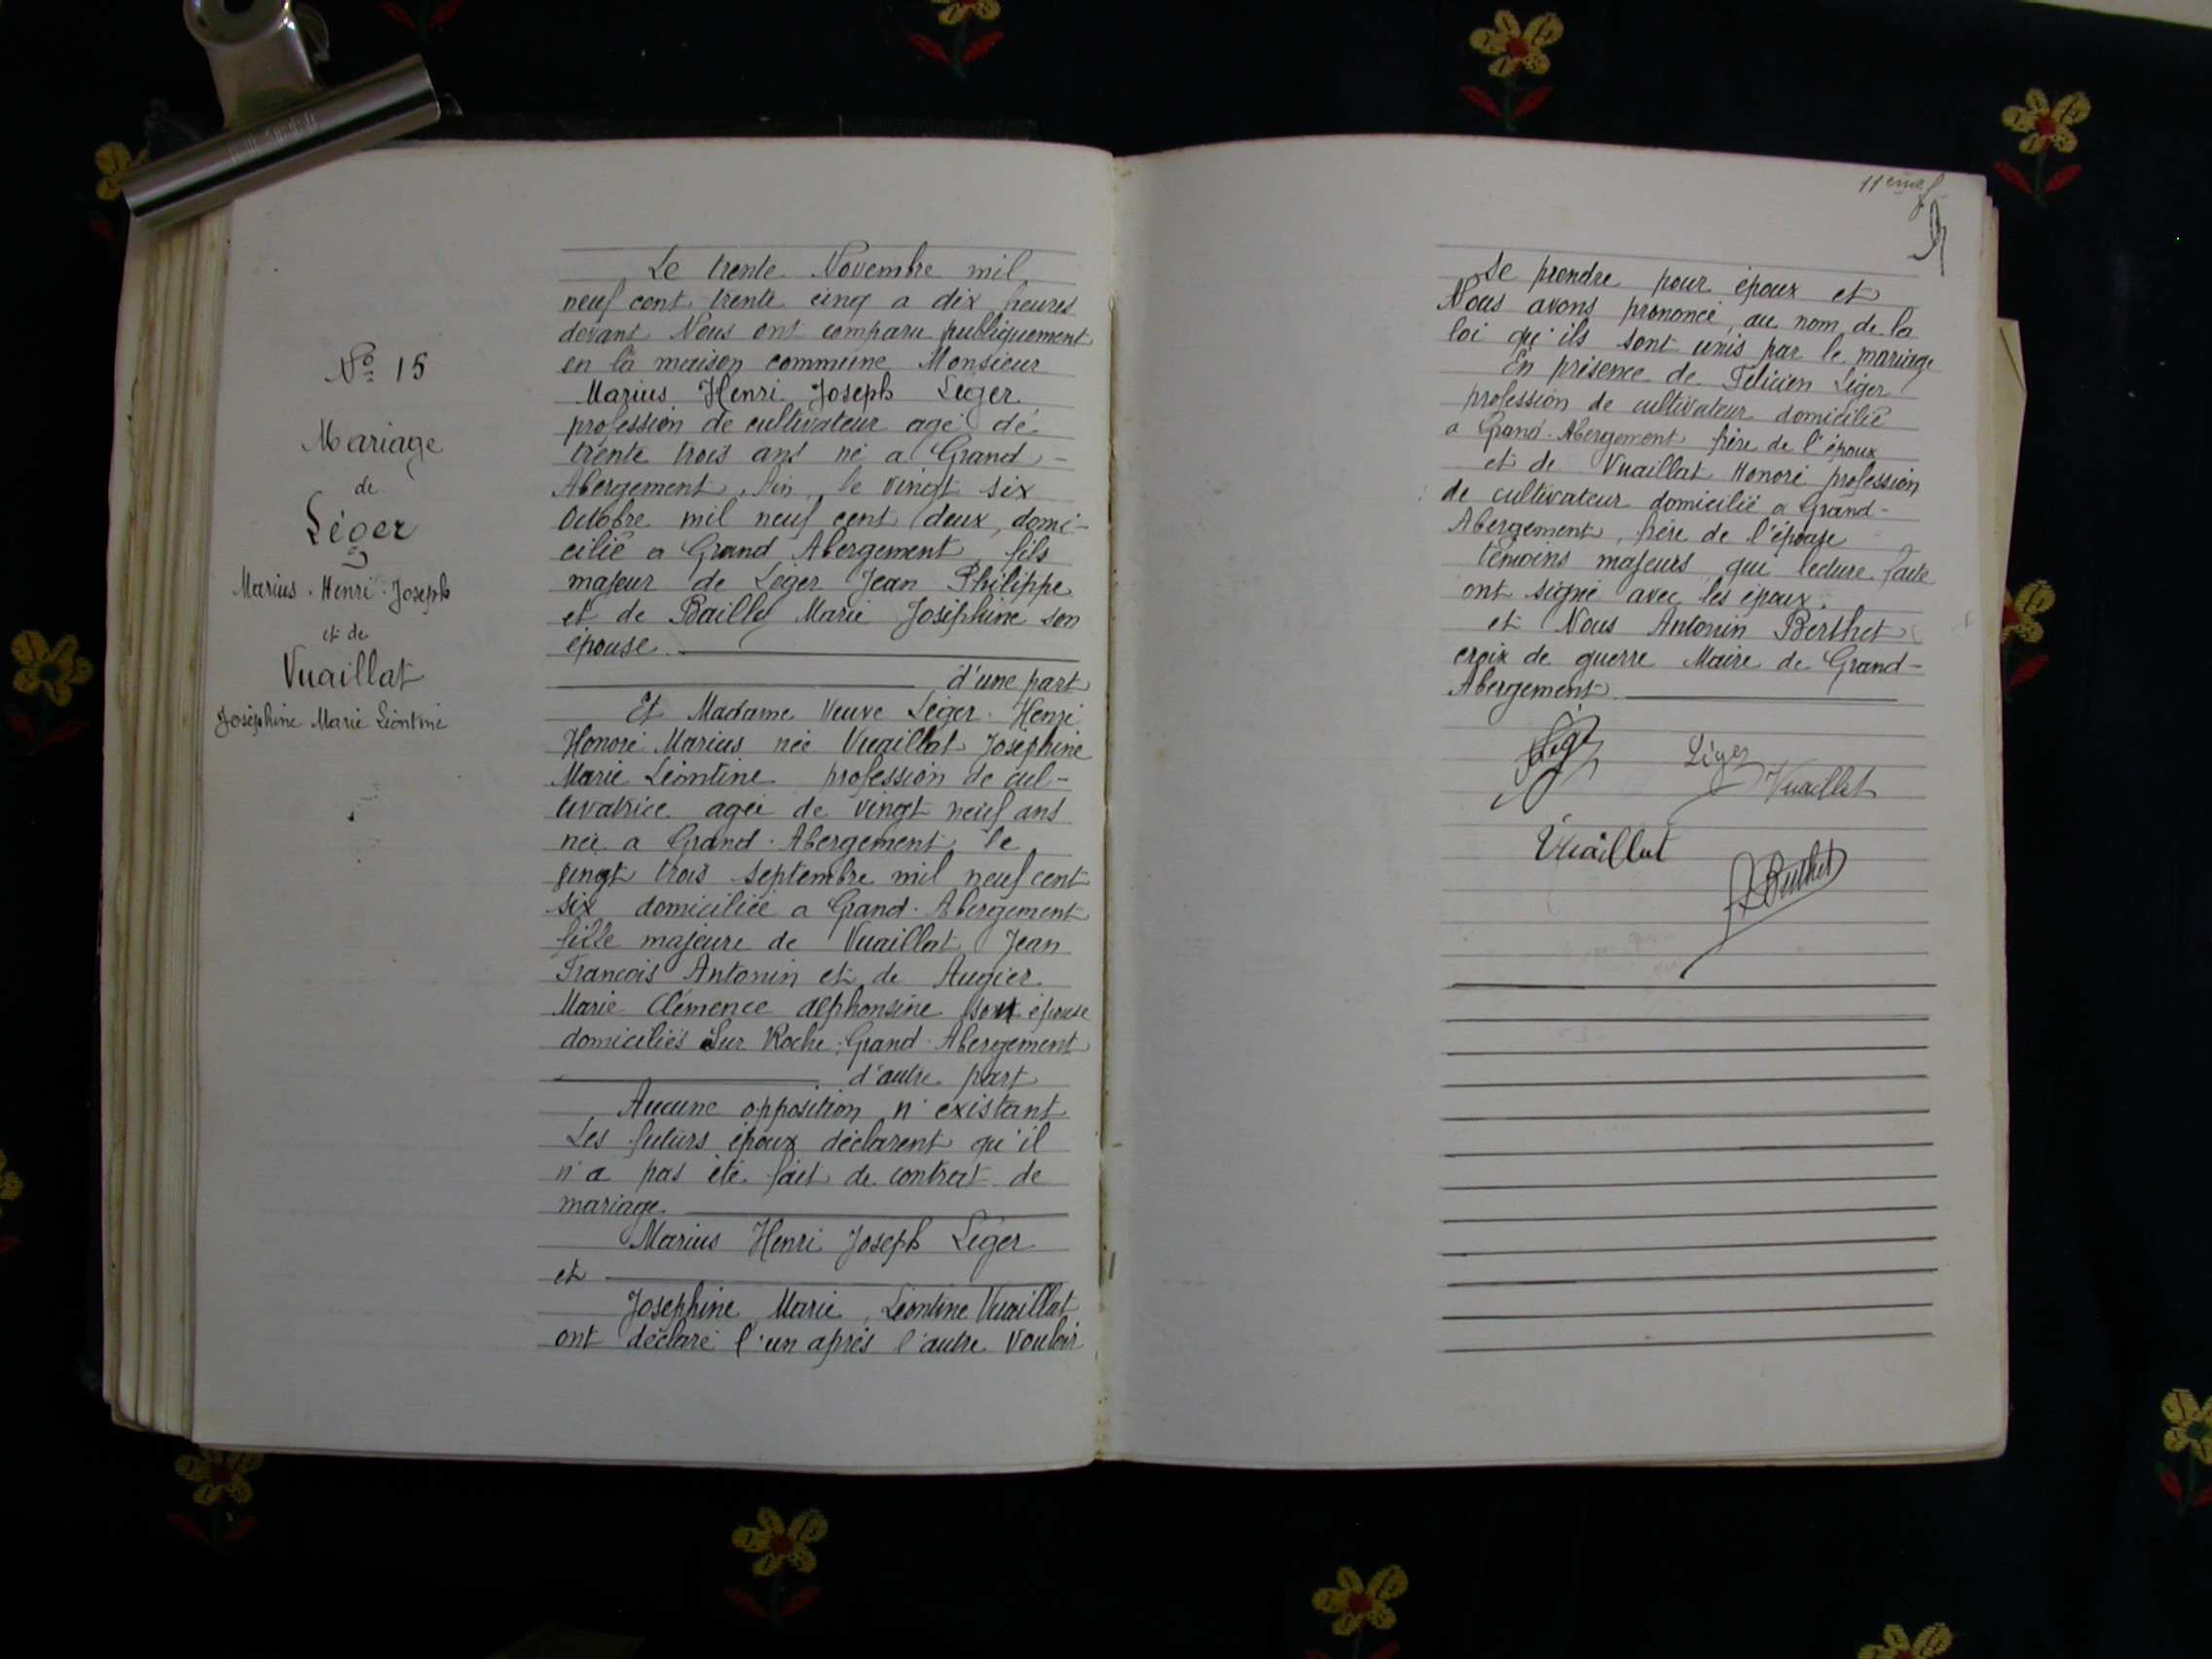 Nº 15
Mariage
de
Léger
Marius. Henri. Joseph
et de
Vuaillat
Joséphine Marie Léontine
Le trente Novembre mil
neuf cent trente cinq a dix heures
devant Nous ont comparu publiquement
en la maison commune Monsieur
Marius Henri Joseph Léger
profession de cultivateur agé de
trente trois ans né a Grand-
Abergement, Ain, le vingt six
Octobre mil neuf cent deux, domi-
cilié a Grand Abergement, fils
majeur de Léger Jean Philippe
et de Bailly Marie Joséphine son
épouse
d'une part
Et Madame Veuve Léger Henri
Honoré Marius née Vuaillat Joséphine
Marie Léontine profession de cul-
tivatrice agée de vingt neuf ans
née a Grand-Abergement le
vingt trois septembre mil neuf cent
six domiciliée a Grand-Abergement
fille majeure de Vuaillat Jean
Francois Antonin et de Augier
Marie Clémence Alphonsine son épouse
domiciliés Sur Roche, Grand-Abergement
d'autre part
Aucune opposition n'existant
Les futurs époux déclarent qu'il
n'a pas été fait de contrat de
mariage.
Marius Henri Joseph Léger
et
Josephine, Marie, Léontine Vuaillat
ont déclaré l'un après l'autre vouloir
11ème f
se prendre pour époux et
Nous avons prononcé, au nom de la
loi qu'ils sont unis par le mariage
En présence de Félicien Léger
profession de cultivateur domicilié
a Grand-Abergement frère de l'époux
et de Vuaillat Honoré profession
de cultivateur domicilié a Grand-
Abergement, frère de l'épouse
témoins majeurs qui lecture faite
ont signé avec les époux.
et Nous Antonin Berthet
croix de guerre Maire de Grand-
Abergement
Léger
Léger
Vuaillat
Vuaillat
Berthet